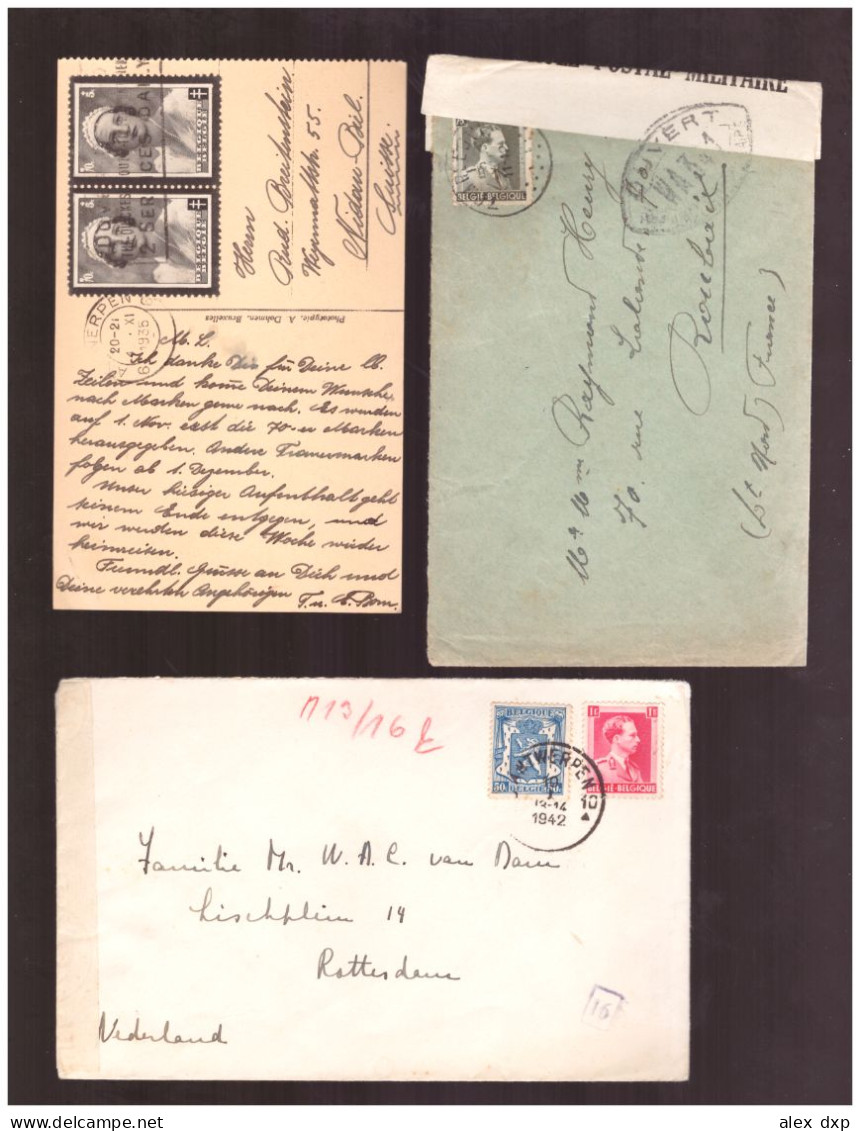 BELGIQUE
BELGIE
70.
+5.
BELGIQUE
BELGIE
70.
+5.
20-21
XI
1935
Herrn
Rud. Breitenstein.
Weyermattstr. 55.
Nidau-Biel
Suisse
Phototypie, A. Dohmen, Bruxelles
M. L.
Ich danke Dir für Deine lb.
Zeilen und komme Deinem Wunsche
nach Marken gerne nach. Es wurden
auf 1. Nov. erst die 70-er Marken
herausgegeben. Andere Trauermarken
folgen ab 1. Dezember.
Unser hiesiger Aufenthalt geht
seinem Ende entgegen, und
wir werden diese Woche wieder
heimreisen.
Freundl. Grüsse an Dich und
Deine verehrten Angehörigen
POSTAL MILITAIRE
OUVERT
BELGIE-BELGIQUE
Raymond Henry
70. rue
Roubaix
(France)
n13/16
BELGIQUE
50c
BELGIE
1F 1F
BELGIE-BELGIQUE
ANTWERPEN
10
10
13-14
1942
Familie Mr. W. A. C. van Dam
14
Rotterdam
Nederland
16
alex dxp